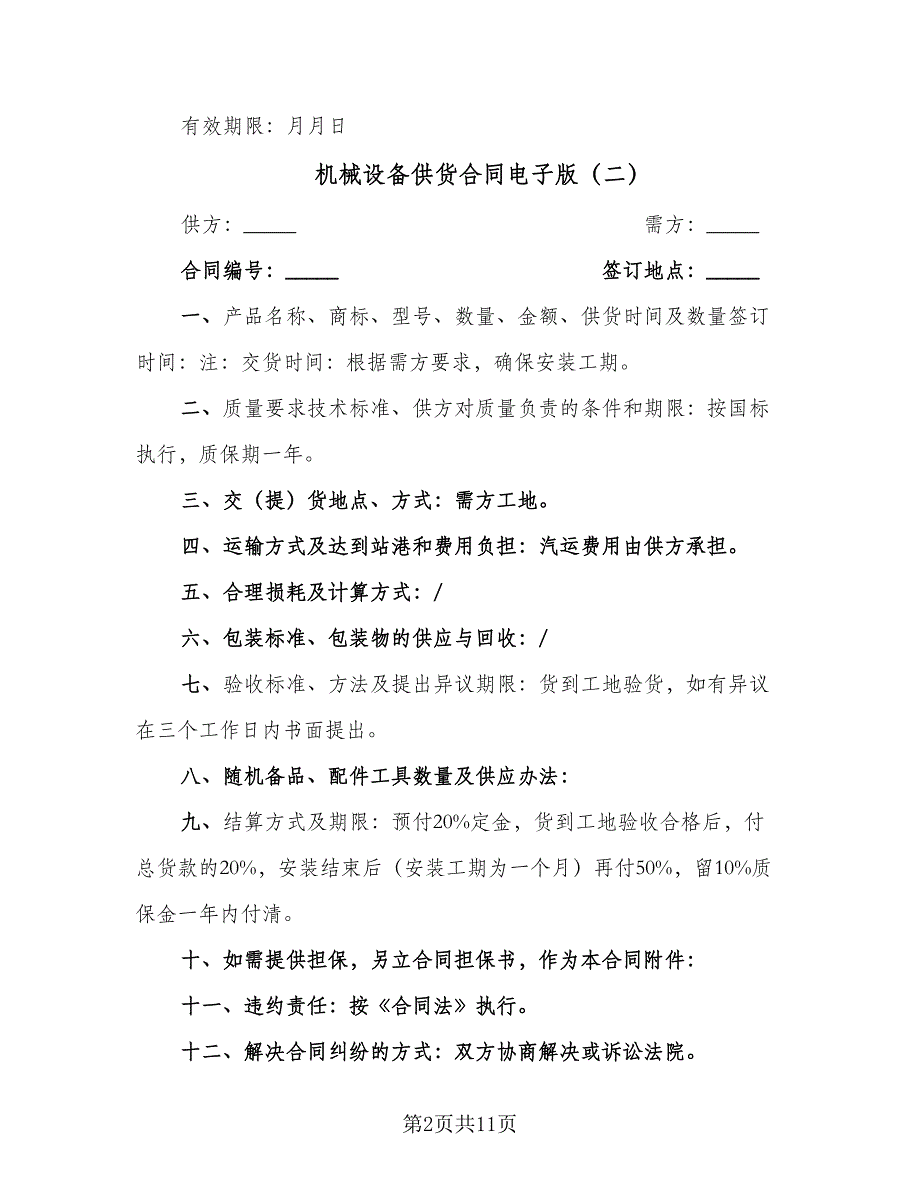 有效期限：月月日
机械设备供货合同电子版（二）
供方：_____ 需方：_____
合同编号：_____ 签订地点：_____
一、产品名称、商标、型号、数量、金额、供货时间及数量签订
时间：注：交货时间：根据需方要求，确保安装工期。
二、质量要求技术标准、供方对质量负责的条件和期限：按国标
执行，质保期一年。
三、交（提）货地点、方式：需方工地。
四、运输方式及达到站港和费用负担：汽运费用由供方承担。
五、合理损耗及计算方式：/
六、包装标准、包装物的供应与回收：/
七、验收标准、方法及提出异议期限：货到工地验货，如有异议
在三个工作日内书面提出。
八、随机备品、配件工具数量及供应办法：
九、结算方式及期限：预付20%定金，货到工地验收合格后，付
总货款的20%，安装结束后（安装工期为一个月）再付50%，留10%质
保金一年内付清。
十、如需提供担保，另立合同担保书，作为本合同附件：
十一、违约责任：按《合同法》执行。
十二、解决合同纠纷的方式：双方协商解决或诉讼法院。
第2页共11页